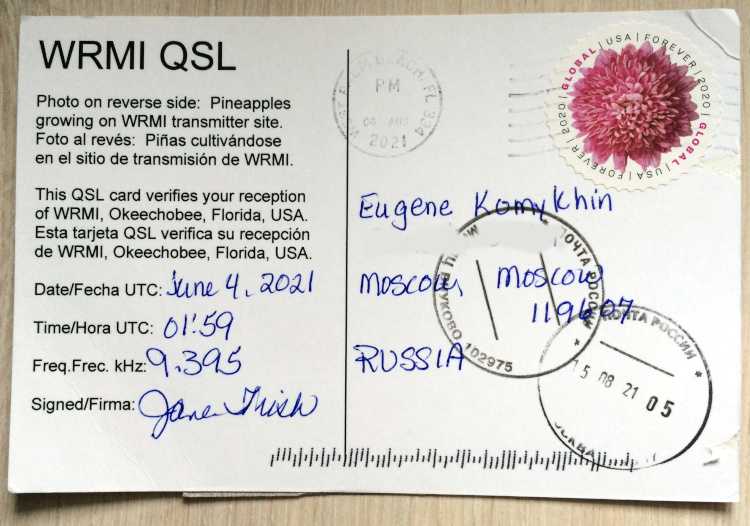 WRMI QSL
Photo on reverse side: Pineapples
growing on WRMI transmitter site.
Foto al revés: Piñas cultivándose
en el sitio de transmisión de WRMI.
This QSL card verifies your reception
of WRMI, Okeechobee, Florida, USA.
Esta tarjeta QSL verifica su recepción
de WRMI, Okeechobee, Florida, USA.
Date/Fecha UTC: June 4, 2021
Time/Hora UTC: 01:59
Freq.Frec. kHz: 9.395
Signed/Firma:
PM
2021
GLOBAL | USA | FOREVER | 2020
GLOBAL | USA | FOREVER | 2020
Eugene Komykhin
Moscow, Moscow
119607
RUSSIA
ПОЧТА РОССИИ
102975
ПОЧТА РОССИИ
15 08 21 05